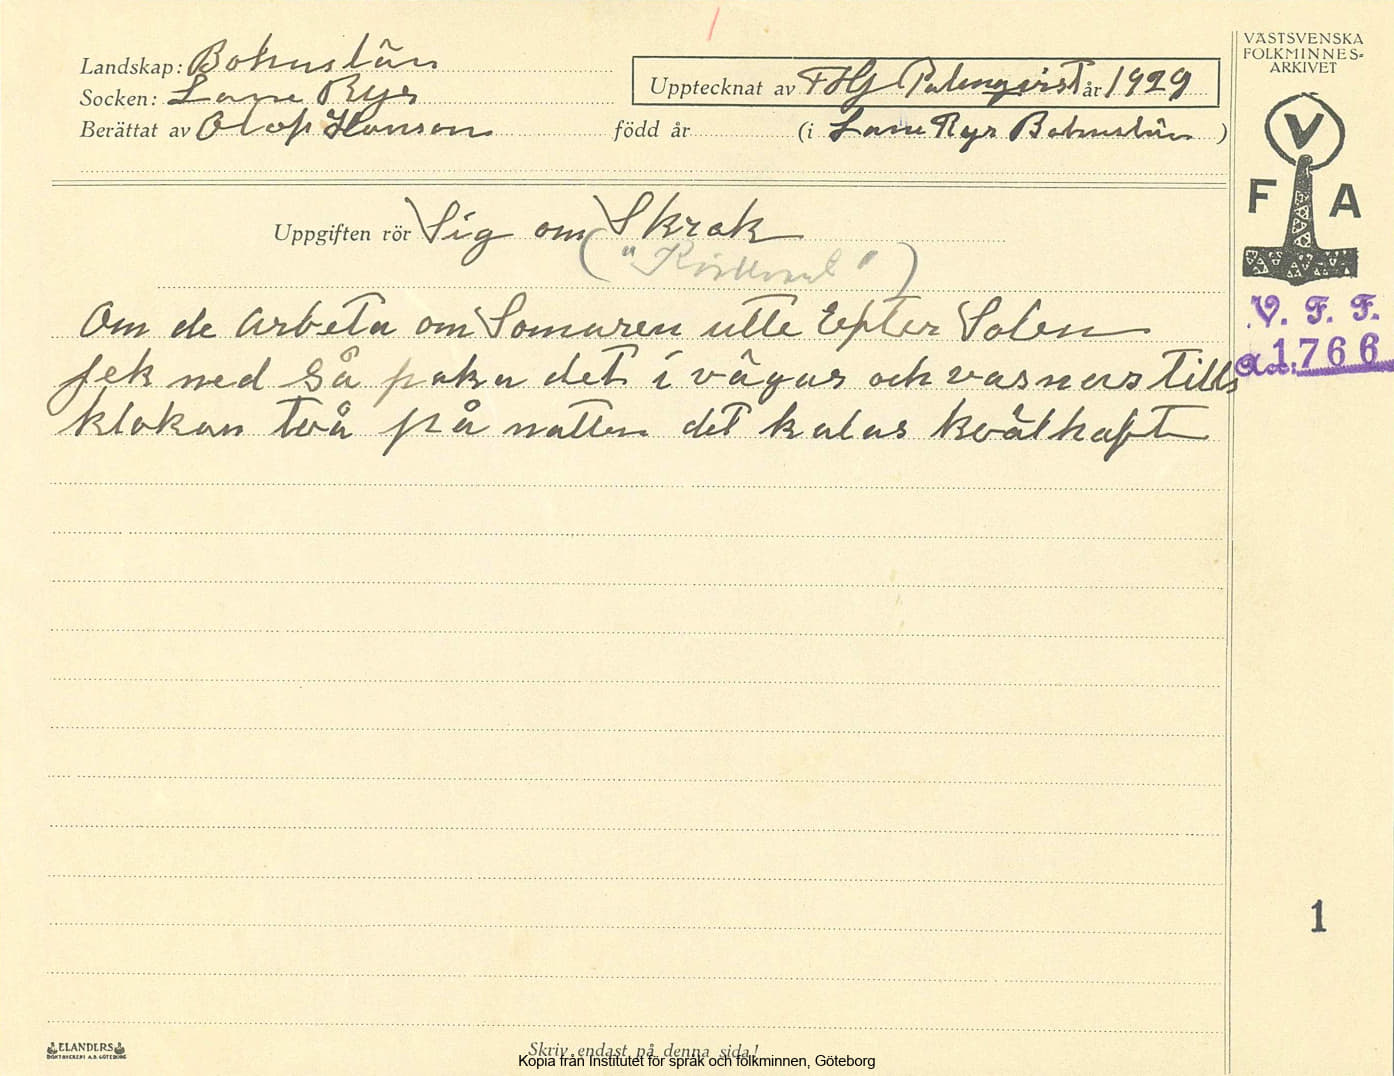 Landskap: Bohuslän
Socken: Lane Ryr
Upptecknat av THG Palmqvist år 1929
Berättat av Olof Hanson född år (i Lane Ryr Bohuslän)
VÄSTSVENSKA
FOLKMINNES-
ARKIVET
V
F A
Uppgiften rör Sig om Skrok
V. F. F.
Acc. 1766
Om de arbeta om Somaren utte Efter Solen
jek ned Så paka det i vägar och vasnars tills
klokan två på natten det kalas kvälhaft
1
ELANDERS
BOKTRYCKERI A.B. GÖTEBORG
Skriv endast på denna sida!
Kopia från Institutet för språk och folkminnen, Göteborg